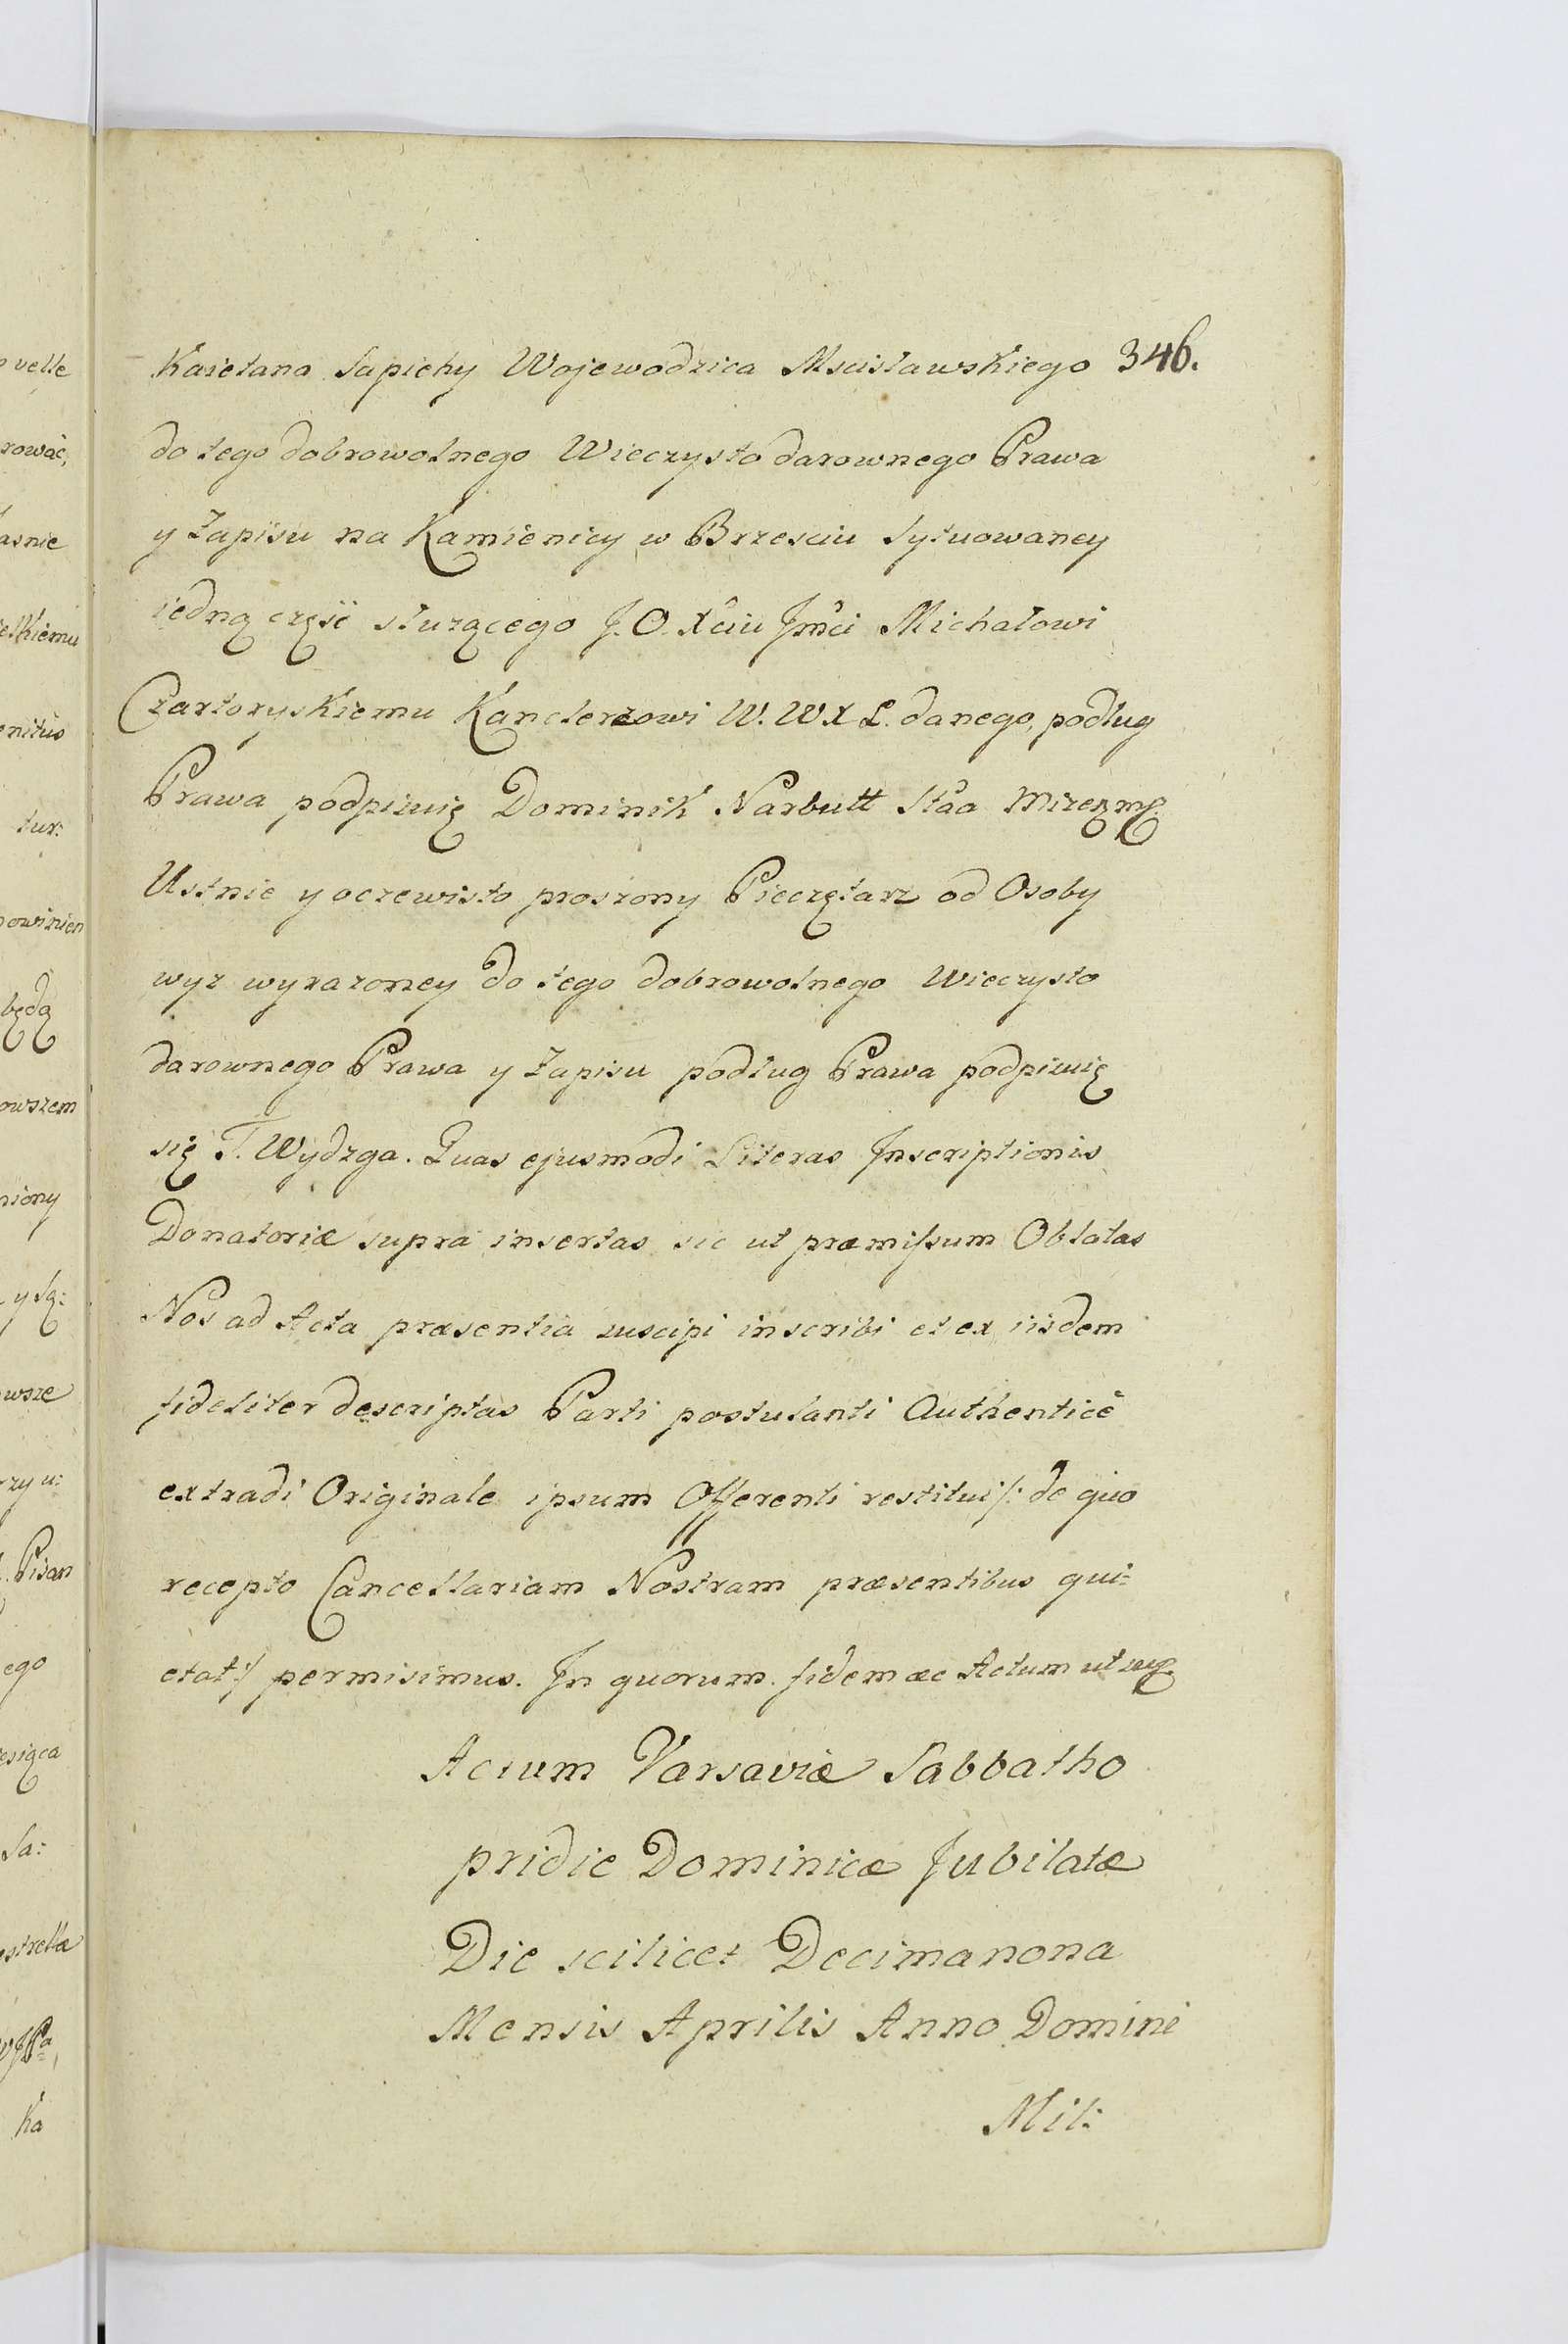 Kaietana Sapiehy Wojewodzica Mscisławskiego 346.
do tego dobrowolnego Wieczysto darownego Prawa
y Zapisu na Kamienicy w Brzesciu Sytuowaney
iedną częsć słuzącego J. O. Xciu Jmci Michałowi
Czartoryskiemu Kanclerzowi W. W X L. danego, podług
Prawa podpisuię Dominik Narbutt Stta
Ustnie y oczewisto proszony Pieczętarz od Osoby
wyz wyrazoney do tego dobrowolnego Wieczysto
darownego Prawa y Zapisu podług Prawa podpisuię
się T. Wydzga. Quas ejusmodi Literas Inscriptionis
Donatoriæ supra insertas sic ut præmissum Oblatas
Nos ad Acta præsentia suscipi inscribi et ex iisdem
fideliter descriptas Parti postulanti Authenticè
extradi Originale ipsum Offerenti restitui /: de quo
recepto Cancellariam Nostram præsentibus qui=
etat :/ permisimus. In quorum fidem &c Actum ut sup.
Actum Varsaviæ Sabbatho
pridie Dominicæ Jubilatæ
Die scilicet Decimanona
Mensis Aprilis Anno Domini
Mil:
velle
rować,
asnie
eskiemu
enitus
tur:
owinien
będą
owszem
niony
y Są:
wsze
rzy u:
Pisan
ego
esiąca
Sa:
estrella
ka